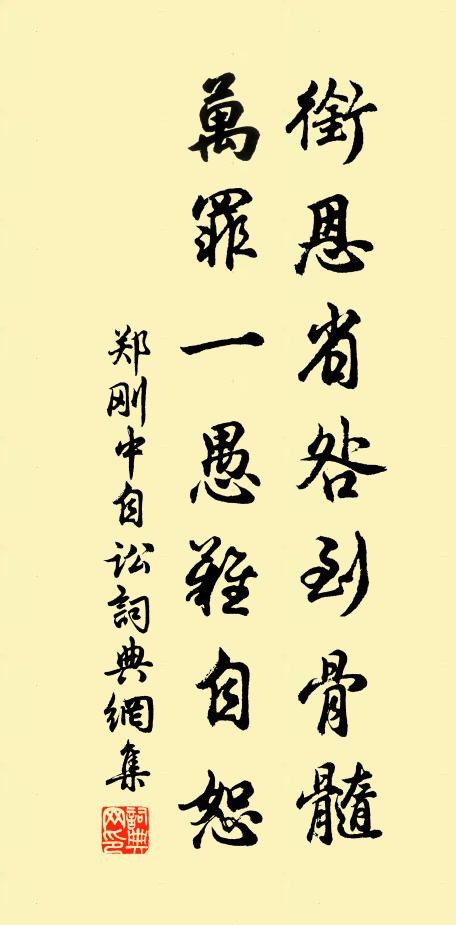 銜恩省咎到骨髓
萬罪一愚難自恕
郑刚中自訟詞典網集
詞典网印